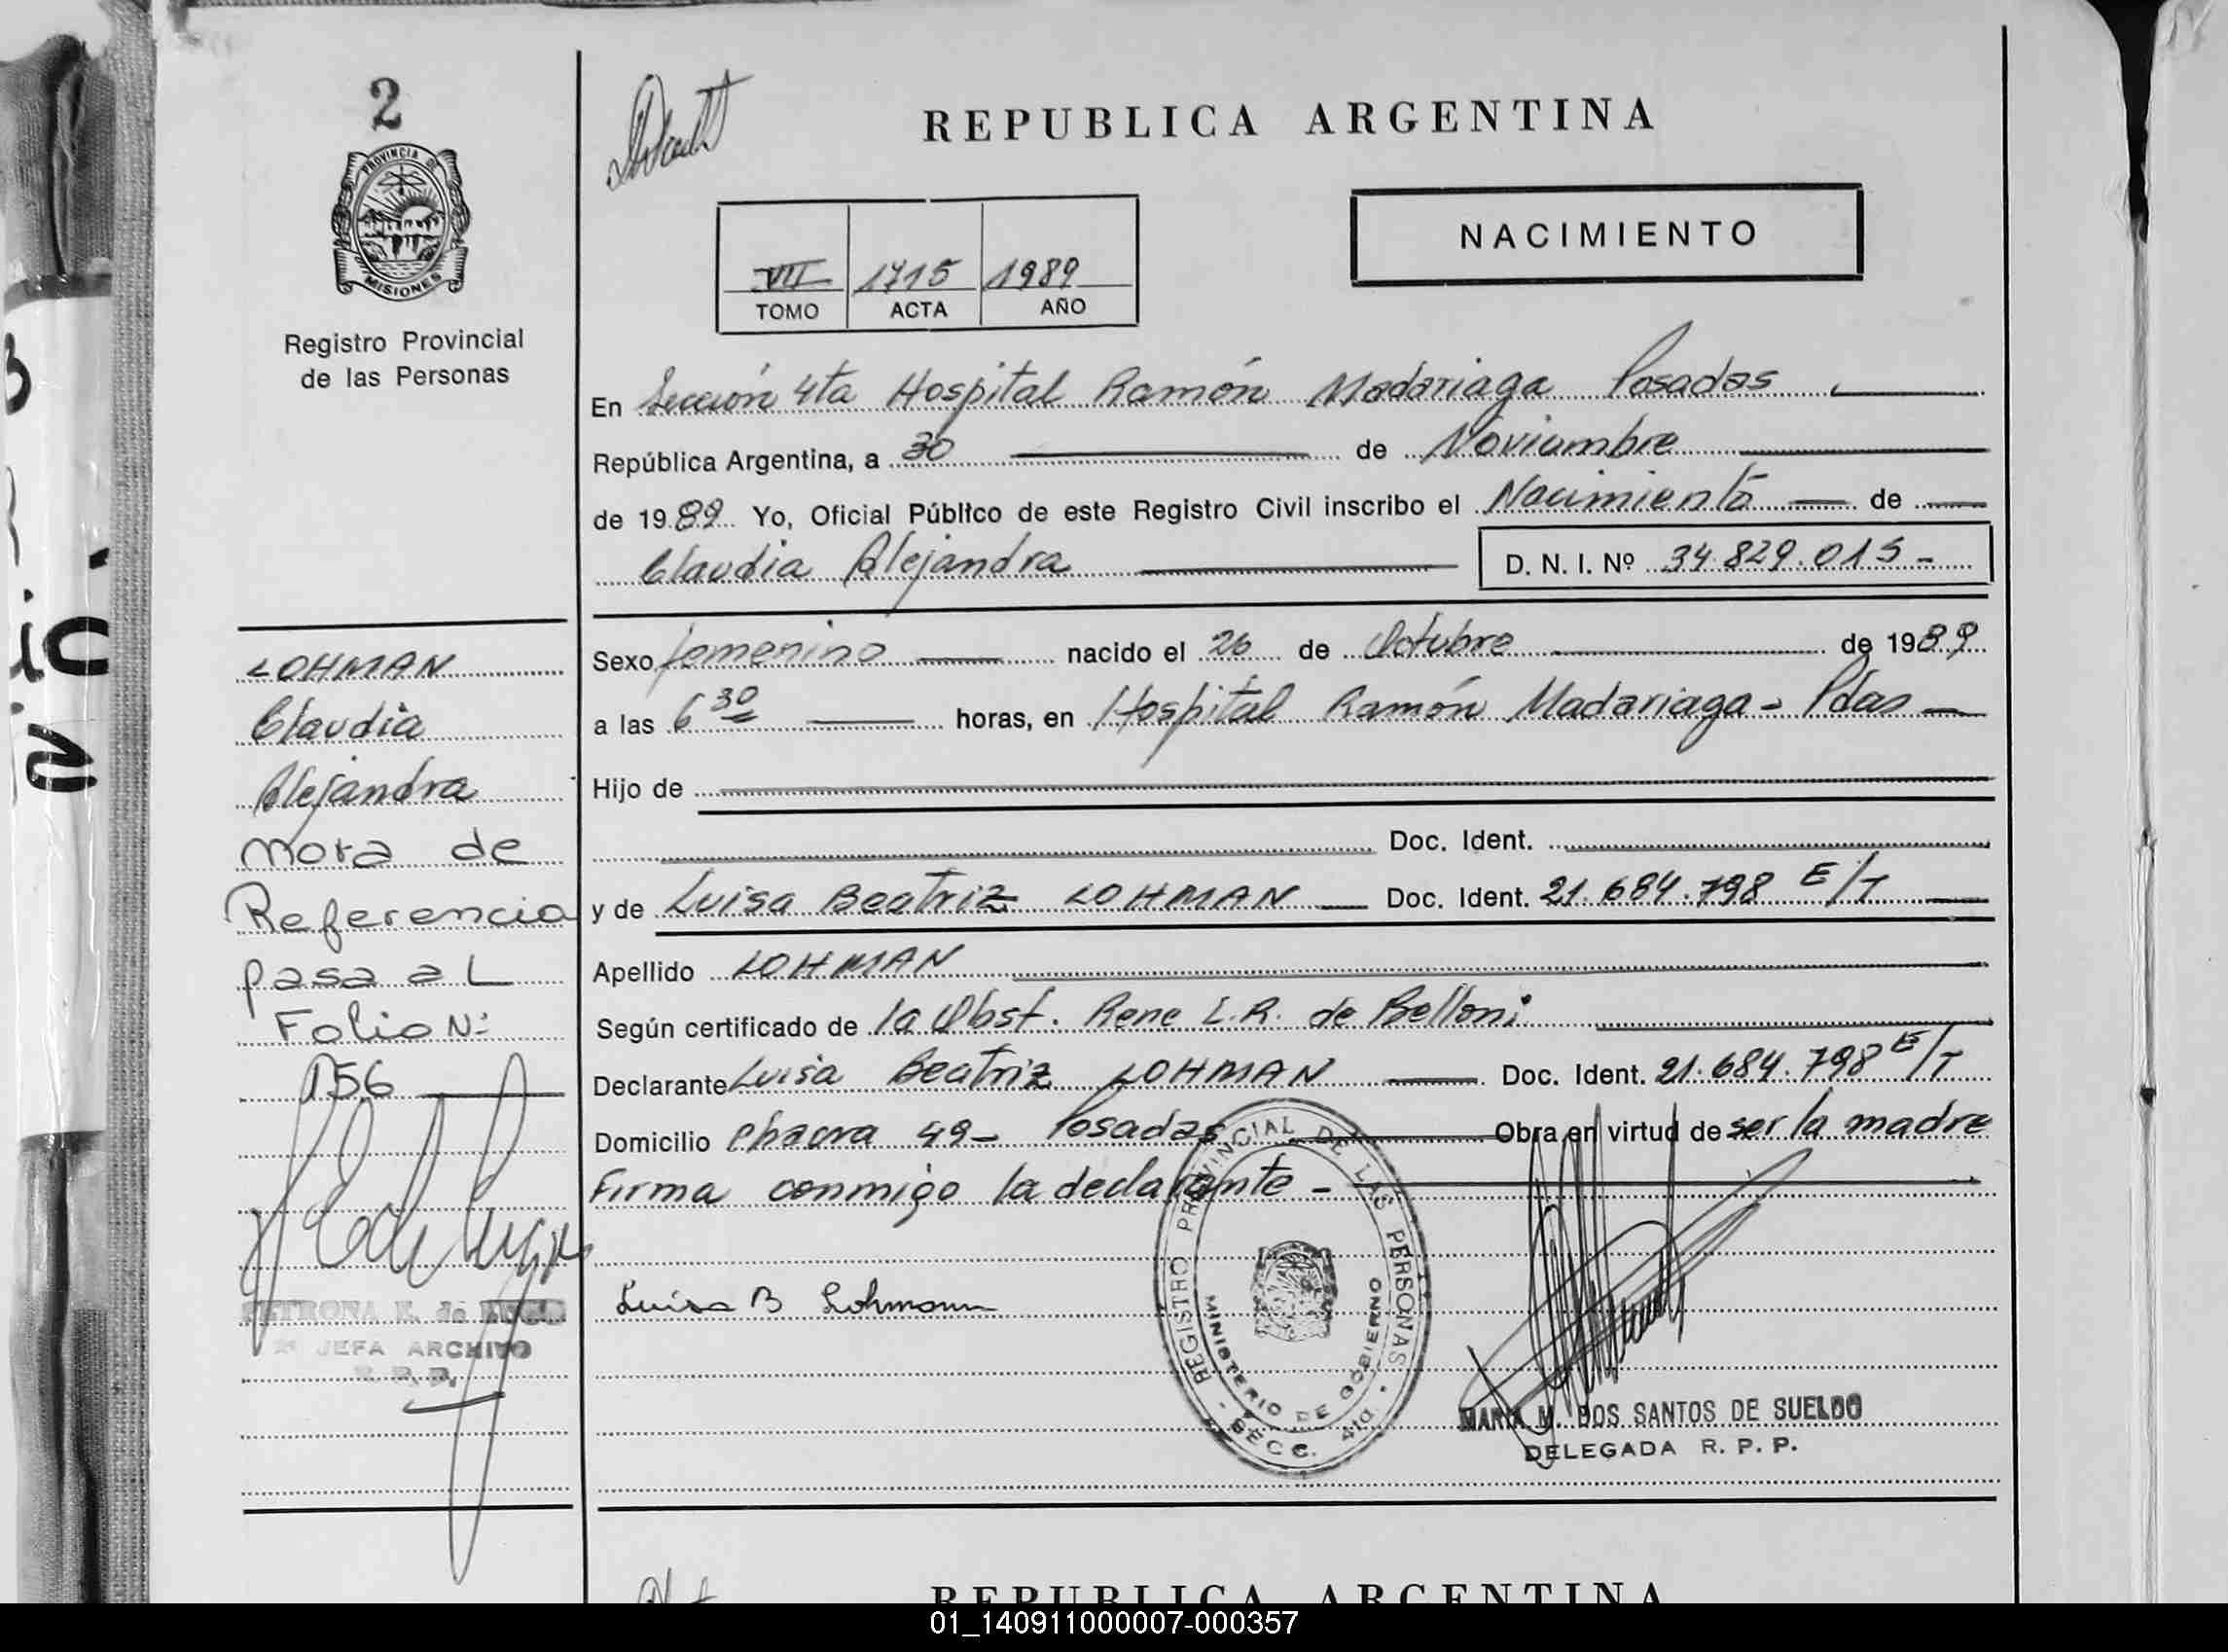 2
PROVINCIA DE
MISIONES
Registro Provincial
de las Personas
REPUBLICA ARGENTINA
NACIMIENTO
VII 1715 1989
TOMO ACTA AÑO
En Sección 4ta Hospital Ramón Madariaga Posadas
República Argentina, a 30 de Noviembre
de 1989 Yo, Oficial Público de este Registro Civil inscribo el Nacimiento de
Claudia Alejandra D. N. I. Nº 34.829.015 -
Sexo femenino nacido el 26 de Octubre de 1989
a las 6 30 horas, en Hospital Ramón Madariaga - Pdas
Hijo de
Doc. Ident.
y de Luisa Beatriz LOHMAN Doc. Ident. 21.684.798 E/T
Apellido LOHMAN
Según certificado de la Obst. Rene L.R. de Belloni
Declarante Luisa Beatriz LOHMAN Doc. Ident. 21.684.798 E/T
Domicilio chacra 49- Posadas Obra en virtud de ser la madre
Firma conmigo la declarante -
Luisa B Lohmann
REGISTRO PROVINCIAL DE LAS PERSONAS
MINISTERIO DE GOBIERNO
SECC. 4ta.
MARIA M. DOS SANTOS DE SUELDO
DELEGADA R. P. P.
LOHMAN
Claudia
Alejandra
Nota de
Referencia
pasa al
Folio Nº
156
PETRONA E. de
JEFA ARCHIVO
REPUBLICA ARGENTINA
01_140911000007-000357